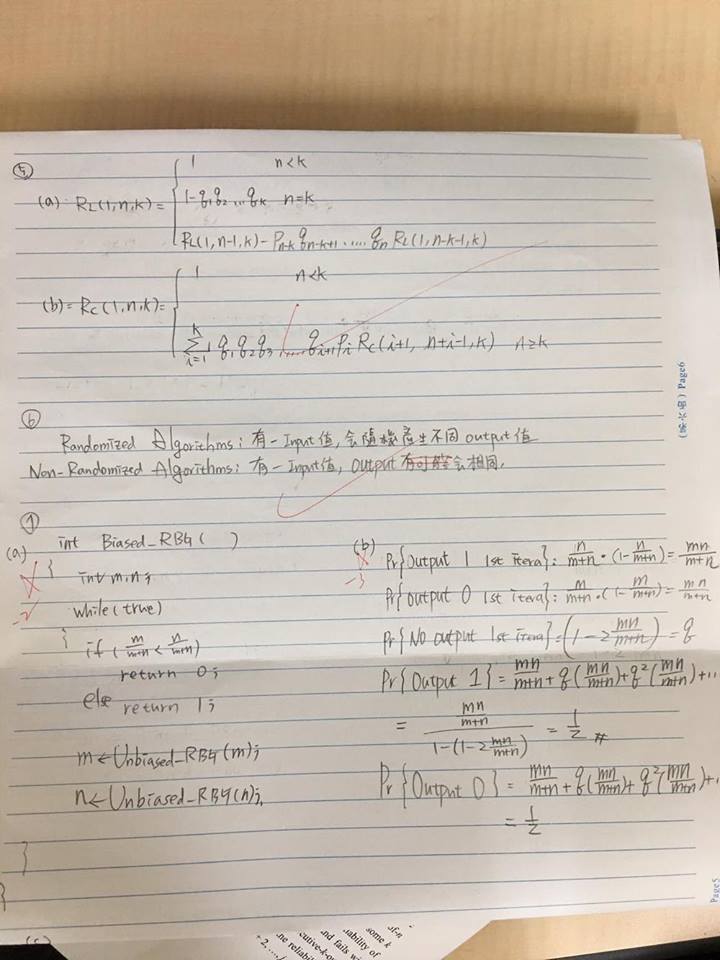 ⑤
(a) R_L(1,n,k)= { 1 n<k
1-q₁q₂...q_k n=k
R_L(1,n-1,k)-P_{n-k} q_{n-k+1}.....q_n R_L(1,n-k-1,k)
(b)= R_C(1,n,k)= { 1 n<k
\sum_{i=1}^{k} q₁q₂q₃.....q_{i+1}P_i R_C(i+1, n+i-1,k) n≥k
⑥
Randomized Algorithms: 有一Input值,会隨機產生不同output值
Non-Randomized Algorithms: 有一Input值, output 会相同.
(a) int Biased_RBG( )
{
-2
int m,n;
while(true)
{ if( \frac{m}{m+n} < \frac{n}{m+n})
return 0;
else return 1;
m←Unbiased_RBG(m);
n←Unbiased_RBG(n);
}
}
(b) Pr{Output 1 1st itera}: \frac{n}{m+n}·(1-\frac{n}{m+n})=\frac{mn}{m+n}
-3
Pr{output 0 1st itera}: \frac{m}{m+n}·(1-\frac{m}{m+n})=\frac{mn}{m+n}
Pr{No output 1st itera}=(1-2\frac{mn}{m+n})=q
Pr{Output 1}=\frac{mn}{m+n}+q(\frac{mn}{m+n})+q²(\frac{mn}{m+n})+..
= \frac{\frac{mn}{m+n}}{1-(1-2\frac{mn}{m+n})} = \frac{1}{2} #
Pr{Output 0}=\frac{mn}{m+n}+q(\frac{mn}{m+n})+q²(\frac{mn}{m+n})+.
=\frac{1}{2}
Page6
Page5
(c)
some k
liability of
and fails w
cutive-k-o
ne reliabil
+ 2,